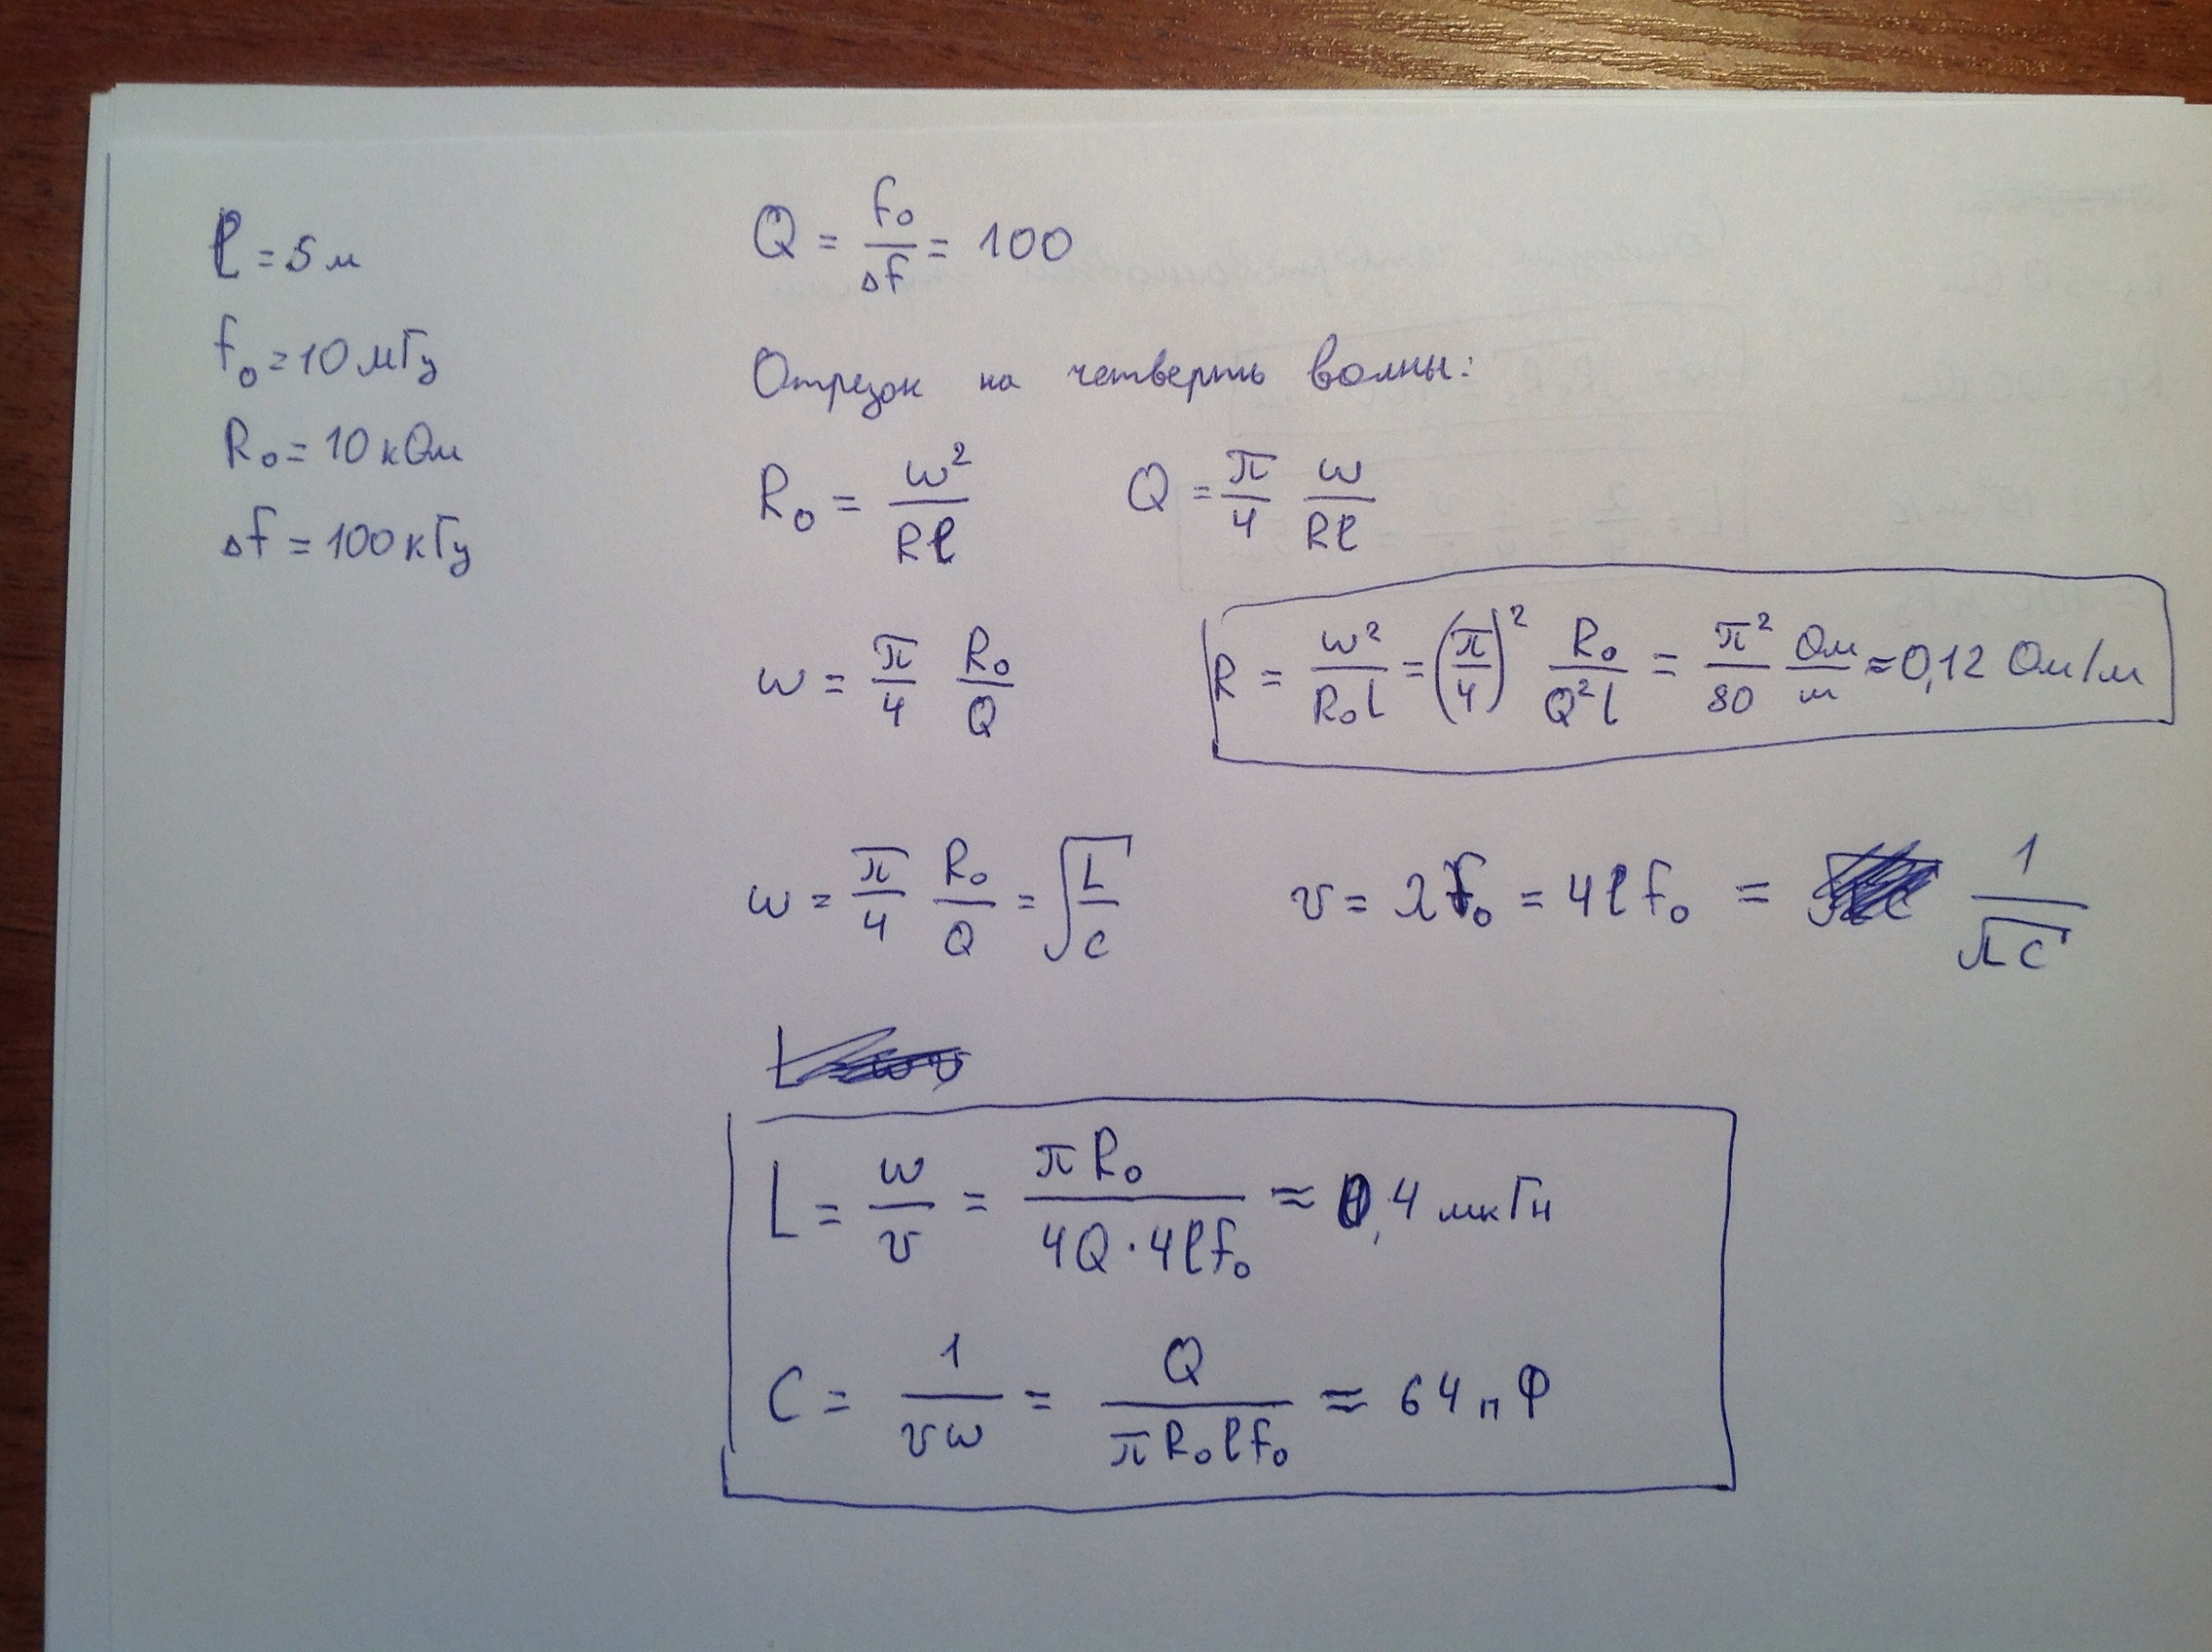 l = 5 м
f₀ = 10 мГц
R₀ = 10 кОм
Δf = 100 кГц
Q = f₀/Δf = 100
Отрезок на четверть волны:
R₀ = w²/Rl   Q = π/4 w/Rl
w = π/4 R₀/Q   R = w²/R₀l = (π/4)² R₀/Q²l = π²/80 Ом/м ≈ 0,12 Ом/м
w = π/4 R₀/Q = √L/C   v = λf₀ = 4lf₀ = 1/√LC
L = w/v = πR₀/4Q·4lf₀ ≈ 0,4 мкГн
C = 1/vw = Q/πR₀lf₀ ≈ 64 пФ